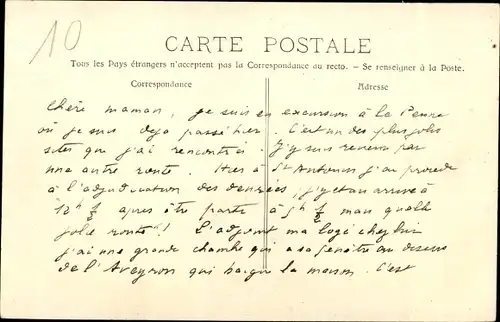 10
CARTE POSTALE
Tous les Pays étrangers n'acceptent pas la Correspondance au recto. - Se renseigner à la Poste.
Correspondance
Adresse
Chère maman, je suis en excursion à la Penne
où je suis deja passé hier. C'est un des plus jolis
sites que j'ai rencontrés. J'y suis revenu par
une autre route. Hier à St Antonin j'ai procédé
à l'adjudication des denrées, j'y étais arrivé à
12h ½ après être parti à 5h ½ mais quelle
jolie route! L'adjoint m'a logé chez lui
j'ai une grande chambre qui a sa fenêtre au dessus
de l'Aveyron qui baigne la maison. C'est